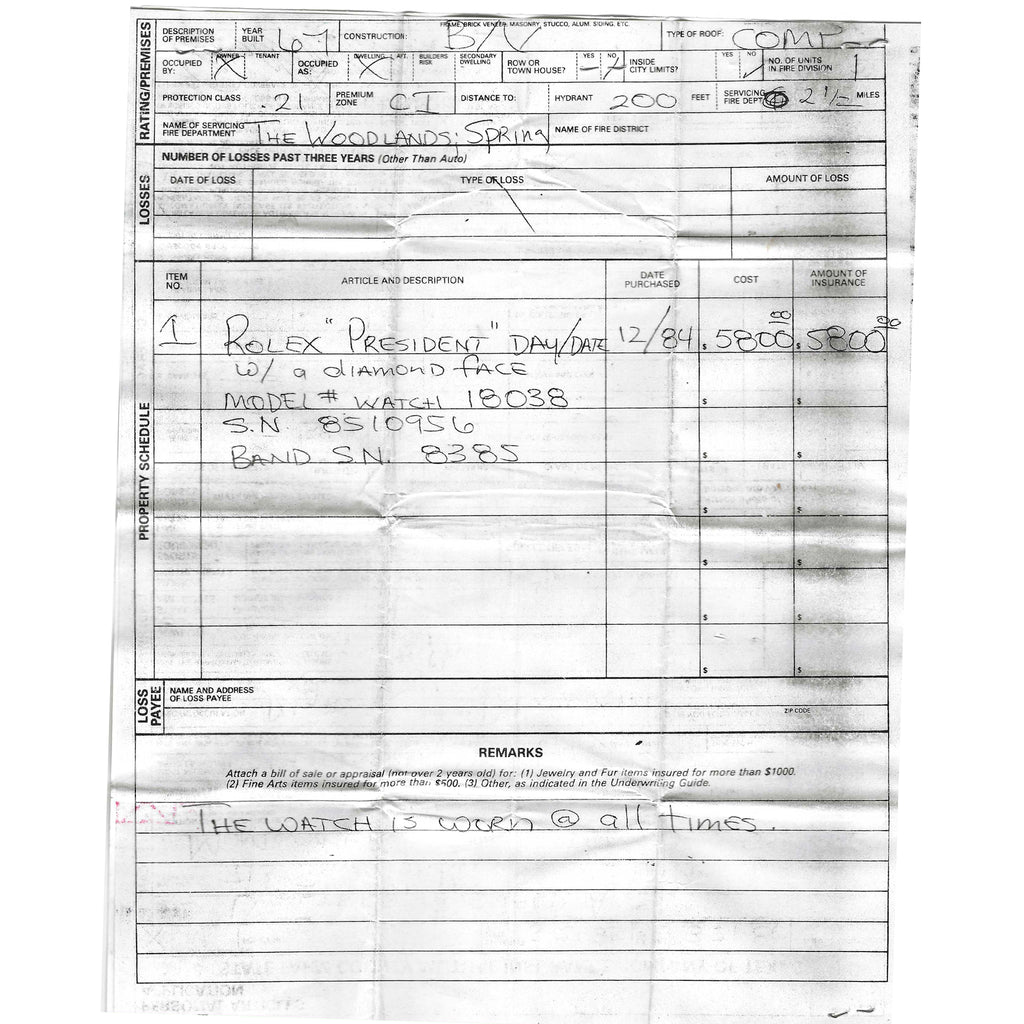 FRAME, BRICK VENEER, MASONRY, STUCCO, ALUM. SIDING, ETC.
RATING/PREMISES
DESCRIPTION OF PREMISES YEAR BUILT 67 CONSTRUCTION: B/V TYPE OF ROOF: COMP
OCCUPIED BY: OWNER X TENANT OCCUPIED AS: DWELLING X APT. BUILDERS RISK SECONDARY DWELLING ROW OR TOWN HOUSE? YES NO INSIDE CITY LIMITS? YES NO NO. OF UNITS IN FIRE DIVISION 1
PROTECTION CLASS .21 PREMIUM ZONE CI DISTANCE TO: HYDRANT 200 FEET SERVICING FIRE DEPT 2 1/2 MILES
NAME OF SERVICING FIRE DEPARTMENT THE WOODLANDS; SPRING NAME OF FIRE DISTRICT
LOSSES
NUMBER OF LOSSES PAST THREE YEARS (Other Than Auto)
DATE OF LOSS TYPE OF LOSS AMOUNT OF LOSS
PROPERTY SCHEDULE
ITEM NO. ARTICLE AND DESCRIPTION DATE PURCHASED COST AMOUNT OF INSURANCE
1 ROLEX "PRESIDENT" DAY/DATE 12/84 $ 5800.00 $ 5800.00
W/ a DIAMOND FACE
MODEL # WATCH 18038 $ $
S.N. 8510956
BAND S.N. 8385 $ $
$ $
$ $
$ $
$ $
LOSS PAYEE
NAME AND ADDRESS OF LOSS PAYEE
ZIP CODE
REMARKS
Attach a bill of sale or appraisal (not over 2 years old) for: (1) Jewelry and Fur items insured for more than $1000.
(2) Fine Arts items insured for more than $500. (3) Other, as indicated in the Underwriting Guide.
THE WATCH IS WORN @ all TIMES.